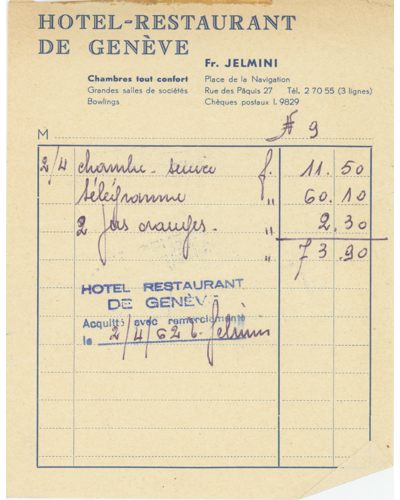 HOTEL-RESTAURANT
DE GENÈVE
Fr. JELMINI
Chambres tout confort
Grandes salles de sociétés
Bowlings
Place de la Navigation
Rue des Pâquis 27 Tél. 2 70 55 (3 lignes)
Chèques postaux I. 9829
M
# 9
2/4 chambre - service f. 11.50
télégramme " 60.10
2 jus oranges. " 2.30
" 73.90
HOTEL RESTAURANT
DE GENÈVE
Acquitté avec remerciements
le 2/4/62 Jelmini